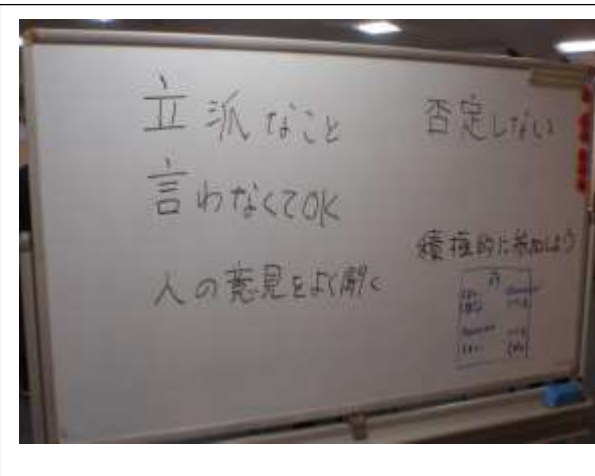 立派なこと
言わなくてOK
人の意見をよく聞く
否定しない
積極的に参加しよう